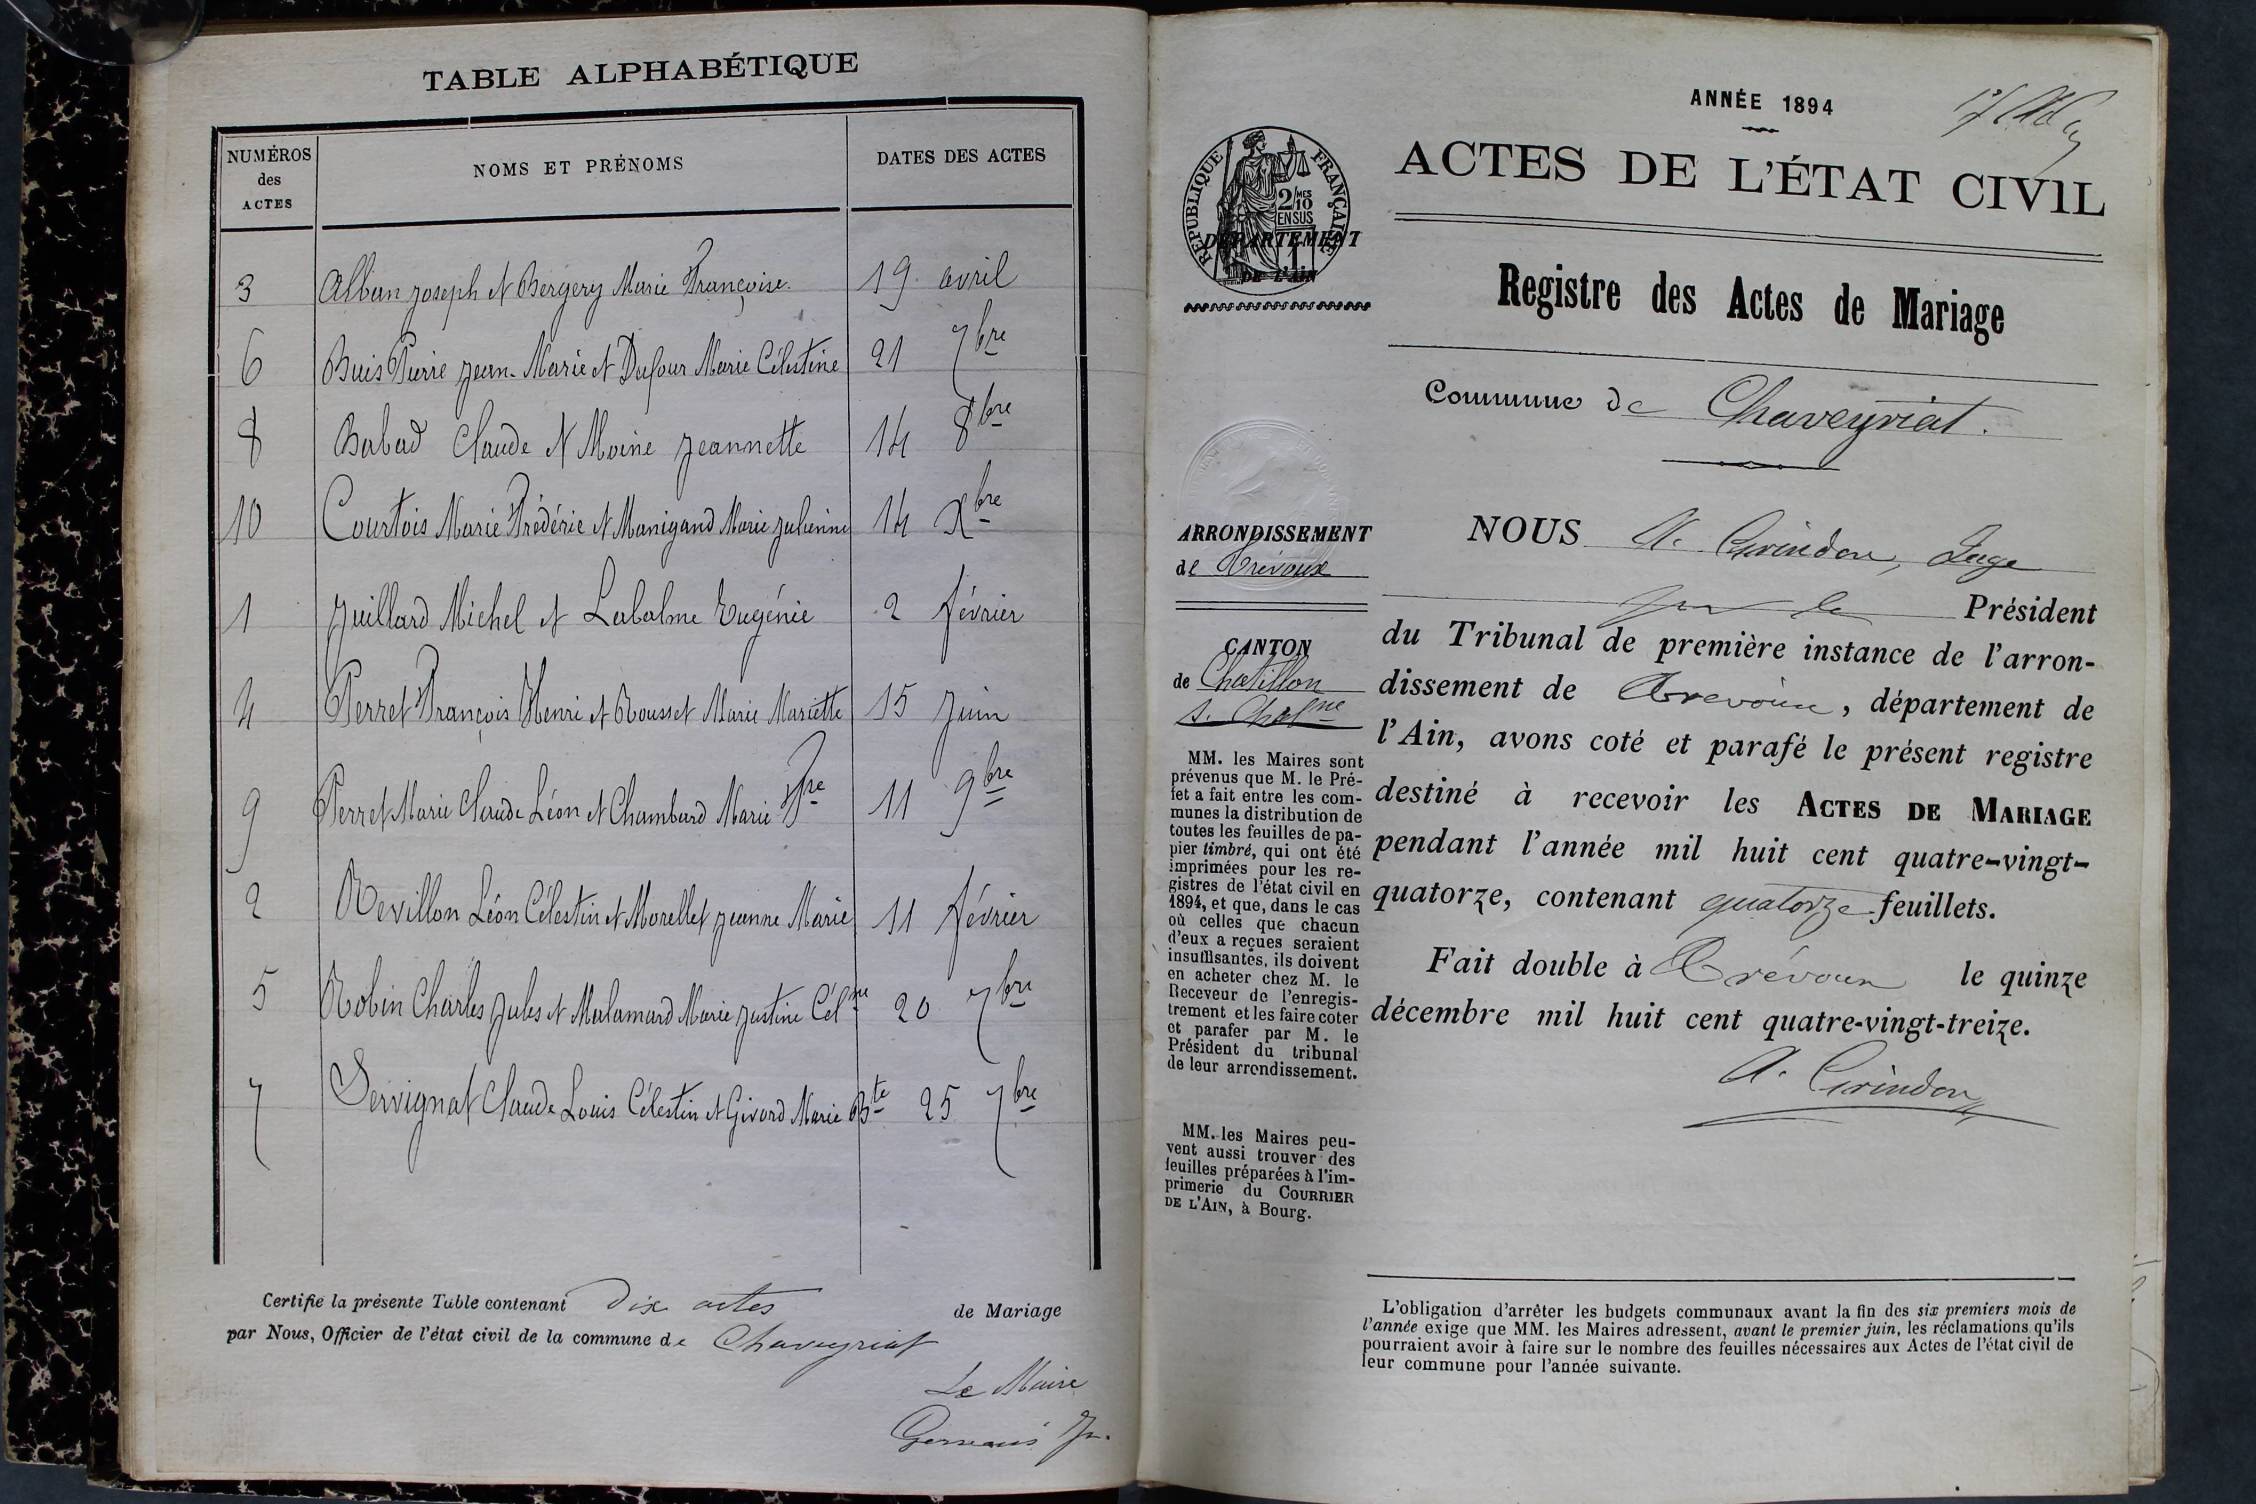 TABLE ALPHABÉTIQUE
NUMÉROS
des
ACTES
NOMS ET PRÉNOMS
DATES DES ACTES
3 Alban Joseph et Bergery Marie Françoise. 19 avril
6 Buis Pierre Jean-Marie et Dufour Marie Célestine 21 7bre
8 Babad Claude et Moine Jeannette 14 8bre
10 Courtois Marie Frédéric et Manigand Marie Julienne 14 Xbre
1 Juillard Michel et Labalme Eugénie 2 février
4 Perret François Henri et Rousset Marie Mariette 15 Juin
9 Perret Marie Claude Léon et Chambard Marie Fre 11 9bre
2 Revillon Léon Célestin et Morellet Jeanne Marie 11 février
5 Robin Charles Jules et Malamard Marie Justine Célne 20 7bre
7 Servignat Claude Louis Célestin et Givord Marie Bte 25 7bre
Certifié la présente Table contenant dix actes de Mariage
par Nous, Officier de l'état civil de la commune de Chaveyriat
Le Maire
ANNÉE 1894
ACTES DE L'ÉTAT CIVIL
RÉPUBLIQUE FRANÇAISE
2/10 MES
EN SUS
DÉPARTEMENT
DE L'AIN
Registre des Actes de Mariage
Commune de Chaveyriat.
ARRONDISSEMENT
de Trévoux
CANTON
de Chatillon
s. Chalne
MM. les Maires sont
prévenus que M. le Pré-
fet a fait entre les com-
munes la distribution de
toutes les feuilles de pa-
pier timbré, qui ont été
imprimées pour les re-
gistres de l'état civil en
1894, et que, dans le cas
où celles que chacun
d'eux a reçues seraient
insuffisantes, ils doivent
en acheter chez M. le
Receveur de l'enregis-
trement et les faire coter
et parafer par M. le
Président du tribunal
de leur arrondissement.
MM. les Maires peu-
vent aussi trouver des
feuilles préparées à l'im-
primerie du COURRIER
DE L'AIN, à Bourg.
NOUS A. Grindon, Juge
pr le Président
du Tribunal de première instance de l'arron-
dissement de Trévoux, département de
l'Ain, avons coté et parafé le présent registre
destiné à recevoir les ACTES DE MARIAGE
pendant l'année mil huit cent quatre-vingt-
quatorze, contenant quatorze feuillets.
Fait double à Trévoux le quinze
décembre mil huit cent quatre-vingt-treize.
A. Grindon
L'obligation d'arrêter les budgets communaux avant la fin des six premiers mois de
l'année exige que MM. les Maires adressent, avant le premier juin, les réclamations qu'ils
pourraient avoir à faire sur le nombre des feuilles nécessaires aux Actes de l'état civil de
leur commune pour l'année suivante.